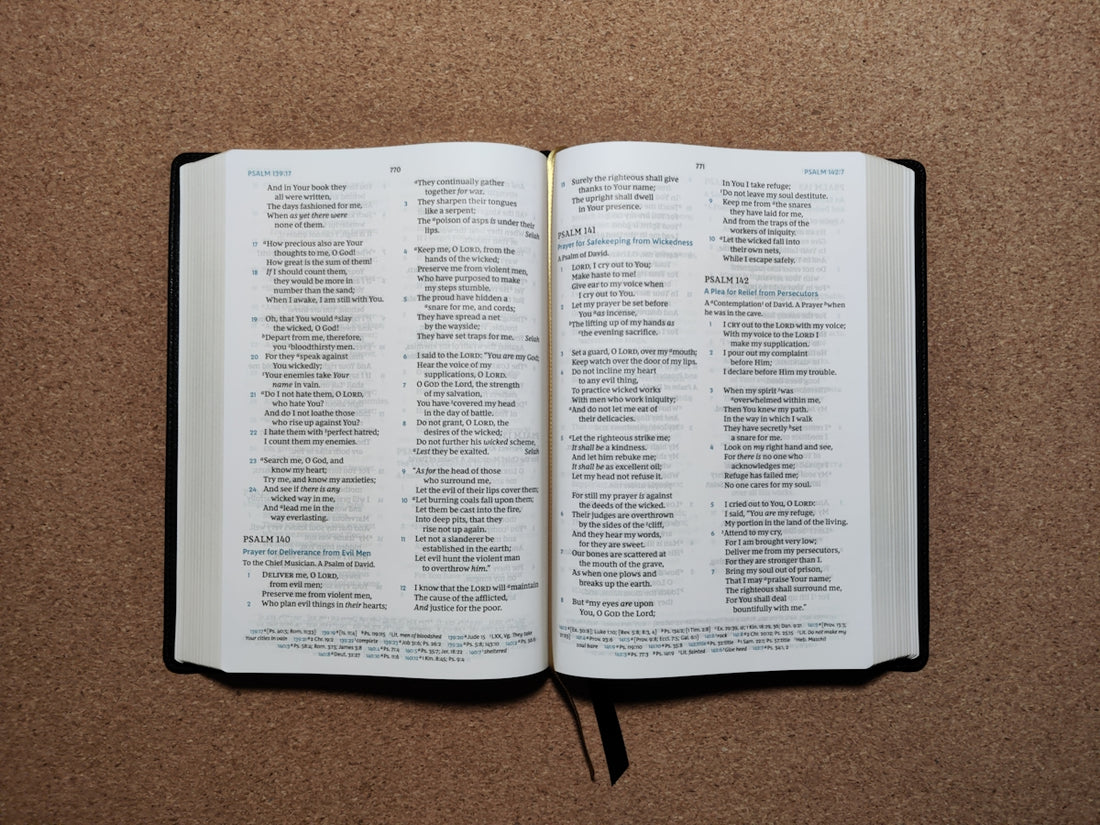 PSALM 139:17
770
And in Your book they
all were written,
The days fashioned for me,
When as yet there were
none of them.
17 aHow precious also are Your
thoughts to me, O God!
How great is the sum of them!
18 If I should count them,
they would be more in
number than the sand;
When I awake, I am still with You.
19 Oh, that You would aslay
the wicked, O God!
bDepart from me, therefore,
you bloodthirsty men.
20 For they aspeak against
You wickedly;
Your enemies take Your
name in vain.
21 aDo I not hate them, O LORD,
who hate You?
And do I not loathe those
who rise up against You?
22 I hate them with perfect hatred;
I count them my enemies.
23 aSearch me, O God, and
know my heart;
Try me, and know my anxieties;
24 And see if there is any
wicked way in me,
And alead me in the
way everlasting.
PSALM 140
Prayer for Deliverance from Evil Men
To the Chief Musician. A Psalm of David.
1 DELIVER me, O LORD,
from evil men;
Preserve me from violent men,
2 Who plan evil things in their hearts;
aThey continually gather
together for war.
3 They sharpen their tongues
like a serpent;
The apoison of asps is under their
lips. Selah
4 aKeep me, O LORD, from the
hands of the wicked;
Preserve me from violent men,
Who have purposed to make
my steps stumble.
5 The proud have hidden a
asnare for me, and cords;
They have spread a net
by the wayside;
They have set traps for me. Selah
6 I said to the LORD: "You are my God;
Hear the voice of my
supplications, O LORD.
7 O GOD the Lord, the strength
of my salvation,
You have covered my head
in the day of battle.
8 Do not grant, O LORD, the
desires of the wicked;
Do not further his wicked scheme,
aLest they be exalted. Selah
9 "As for the head of those
who surround me,
Let the evil of their lips cover them;
10 aLet burning coals fall upon them;
Let them be cast into the fire,
Into deep pits, that they
rise not up again.
11 Let not a slanderer be
established in the earth;
Let evil hunt the violent man
to overthrow him."
12 I know that the LORD will amaintain
The cause of the afflicted,
And justice for the poor.
771
PSALM 142:7
13 Surely the righteous shall give
thanks to Your name;
The upright shall dwell
in Your presence.
PSALM 141
Prayer for Safekeeping from Wickedness
A Psalm of David.
1 LORD, I cry out to You;
Make haste to me!
Give ear to my voice when
I cry out to You.
2 Let my prayer be set before
You aas incense,
bThe lifting up of my hands as
cthe evening sacrifice.
3 Set a guard, O LORD, over my amouth;
Keep watch over the door of my lips.
4 Do not incline my heart
to any evil thing,
To practice wicked works
With men who work iniquity;
aAnd do not let me eat of
their delicacies.
5 aLet the righteous strike me;
It shall be a kindness.
And let him rebuke me;
It shall be as excellent oil;
Let my head not refuse it.
For still my prayer is against
the deeds of the wicked.
6 Their judges are overthrown
by the sides of the cliff,
And they hear my words,
for they are sweet.
7 Our bones are scattered at
the mouth of the grave,
As when one plows and
breaks up the earth.
8 But amy eyes are upon
You, O GOD the Lord;
In You I take refuge;
Do not leave my soul destitute.
9 Keep me from athe snares
they have laid for me,
And from the traps of the
workers of iniquity.
10 aLet the wicked fall into
their own nets,
While I escape safely.
PSALM 142
A Plea for Relief from Persecutors
A aContemplation of David. A Prayer bwhen
he was in the cave.
1 I CRY out to the LORD with my voice;
With my voice to the LORD I
make my supplication.
2 I pour out my complaint
before Him;
I declare before Him my trouble.
3 When my spirit was
aoverwhelmed within me,
Then You knew my path.
In the way in which I walk
They have secretly bset
a snare for me.
4 Look on my right hand and see,
For there is no one who
acknowledges me;
Refuge has failed me;
No one cares for my soul.
5 I cried out to You, O LORD:
I said, "You are my refuge,
My portion in the land of the living.
6 Attend to my cry,
For I am brought very low;
Deliver me from my persecutors,
For they are stronger than I.
7 Bring my soul out of prison,
That I may apraise Your name;
The righteous shall surround me,
For You shall deal
bountifully with me."